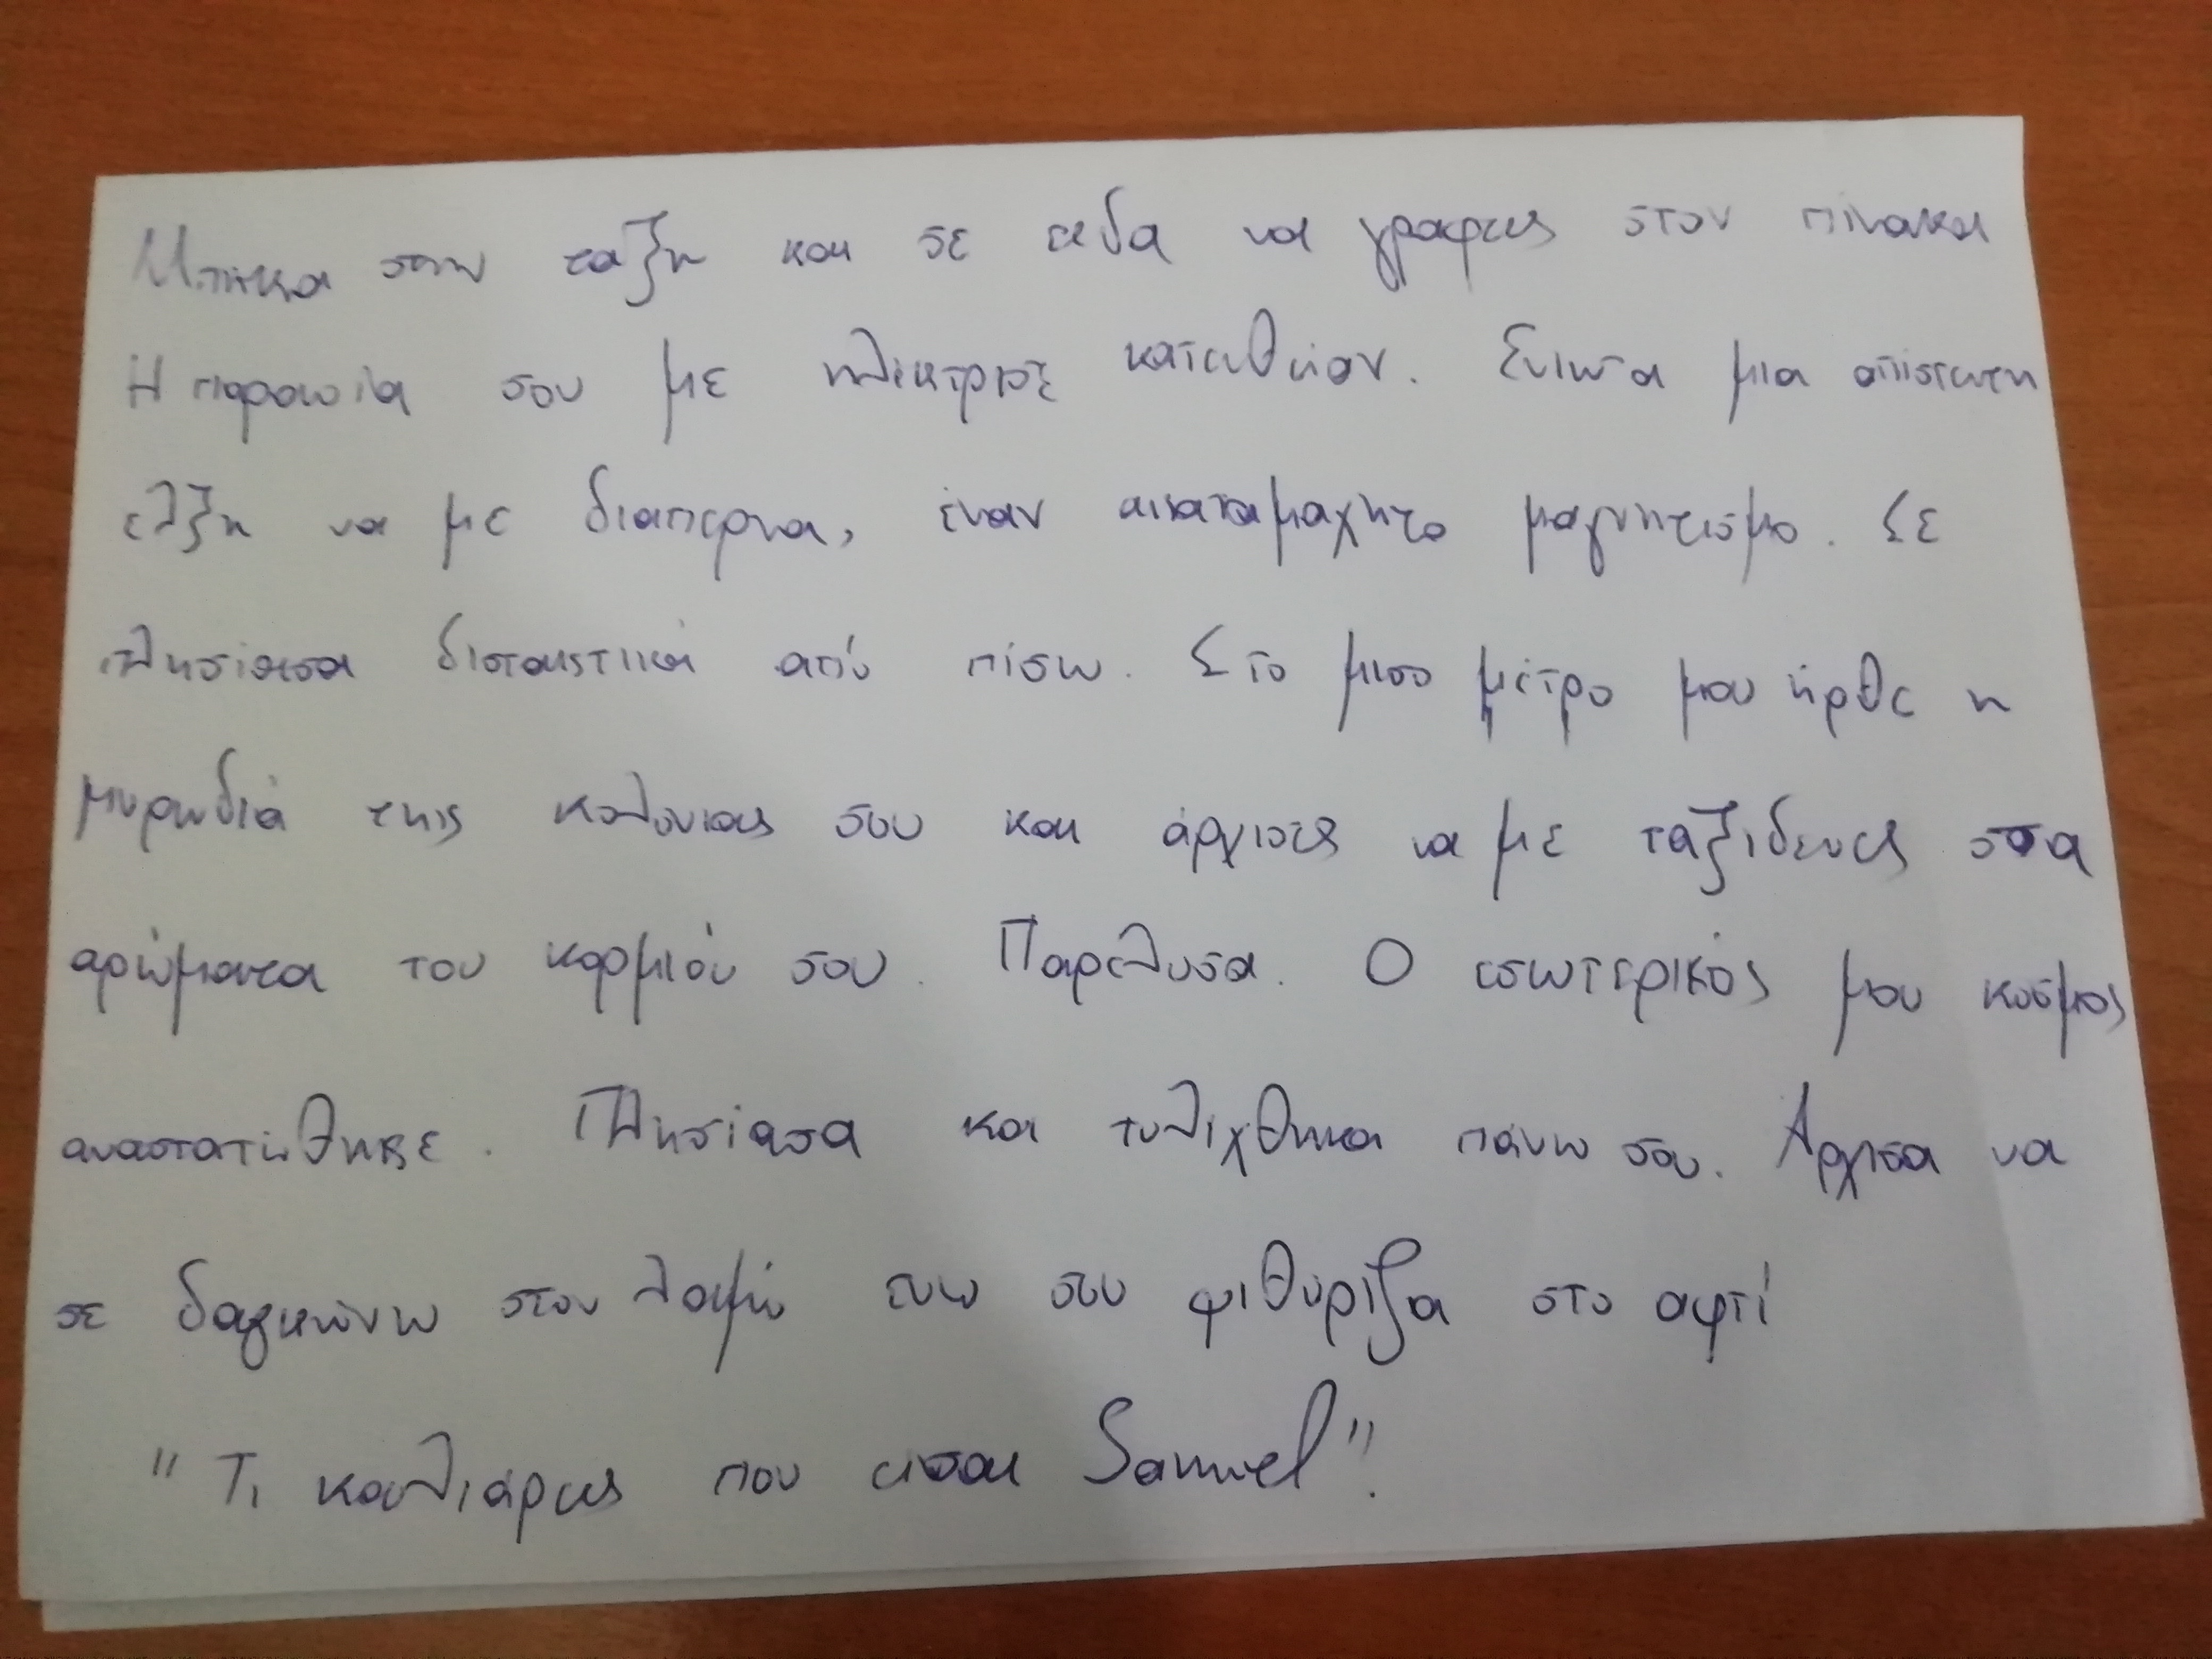 Μπηκα στην ταξη και σε ειδα να γραφεις στον πινακα
Η παρουσία σου με ηλεκτρισε κατευθείαν. Ενιωσα μια απίστευτη
ελξη να με διαπερνα, έναν ακαταμαχητο μαγνητισμο. Σε
πλησίασα διστακτικά από πίσω. Στο μισο μέτρο μου ήρθε η
μυρωδιά της κολονιας σου και άρχισες να με ταξιδευεις στα
αρώματα του κορμιού σου. Παρέλυσα. Ο εσωτερικός μου κοσμος
αναστατώθηκε. Πλησίασα και τυλίχθηκα πάνω σου. Αρχισα να
σε δαγκώνω στον λαιμό ενω σου ψιθυρίζα στο αφτί
"Τι καυλιάρης που εισαι Samuel".